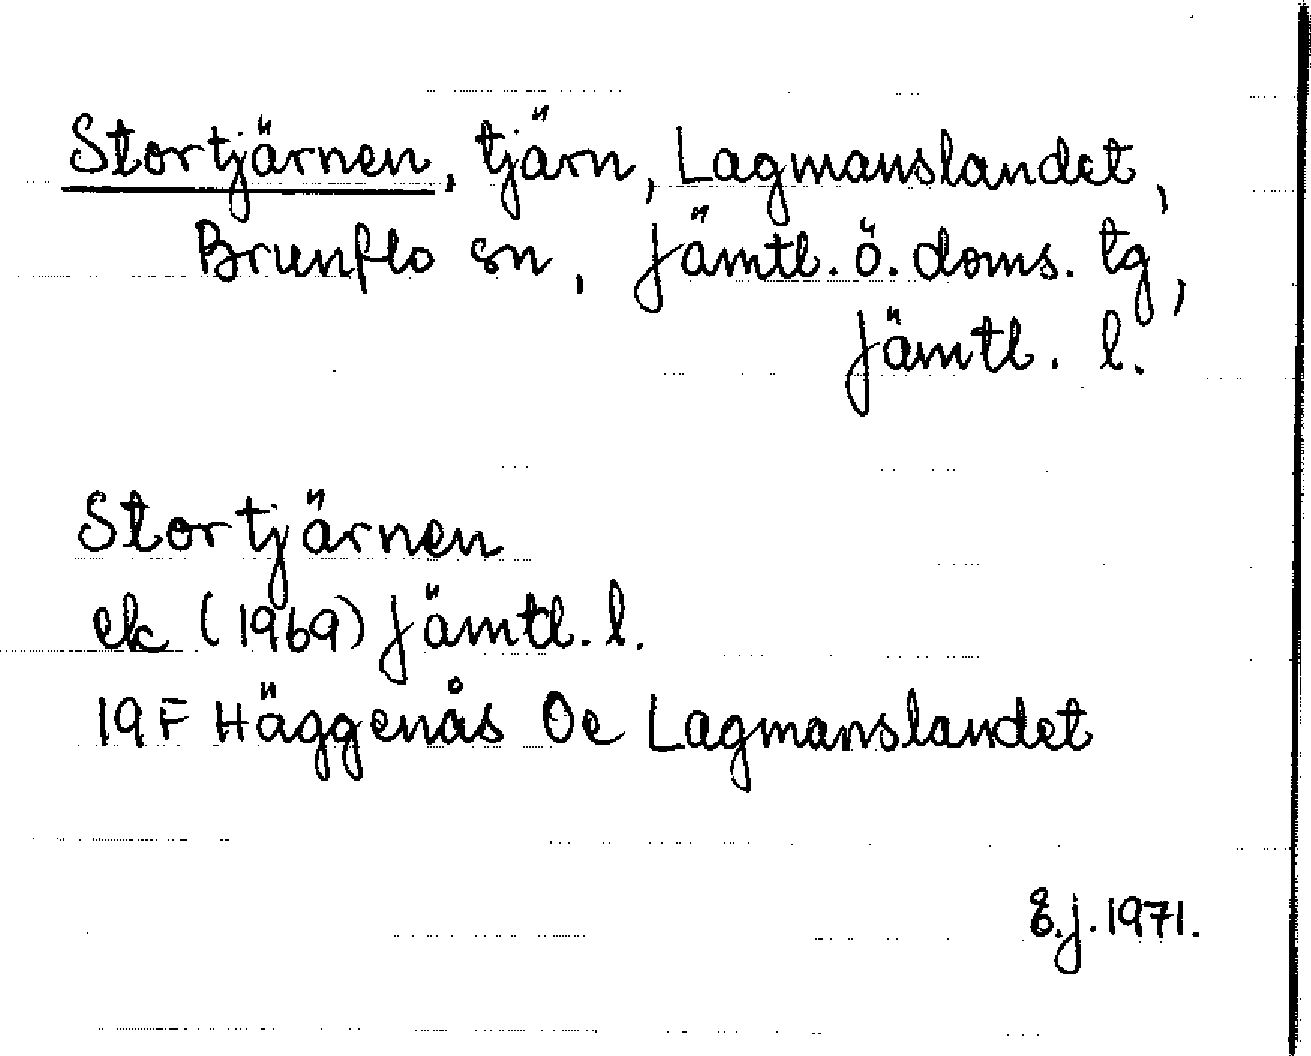 Stortjärnen, tjärn, Lagmanslandet,
Brunflo sn, Jämtl. ö. doms. tg,
Jämtl. l.
Stortjärnen
ek (1969) Jämtl. l.
19F Häggenås Oe Lagmanslandet
E.J. 1971.